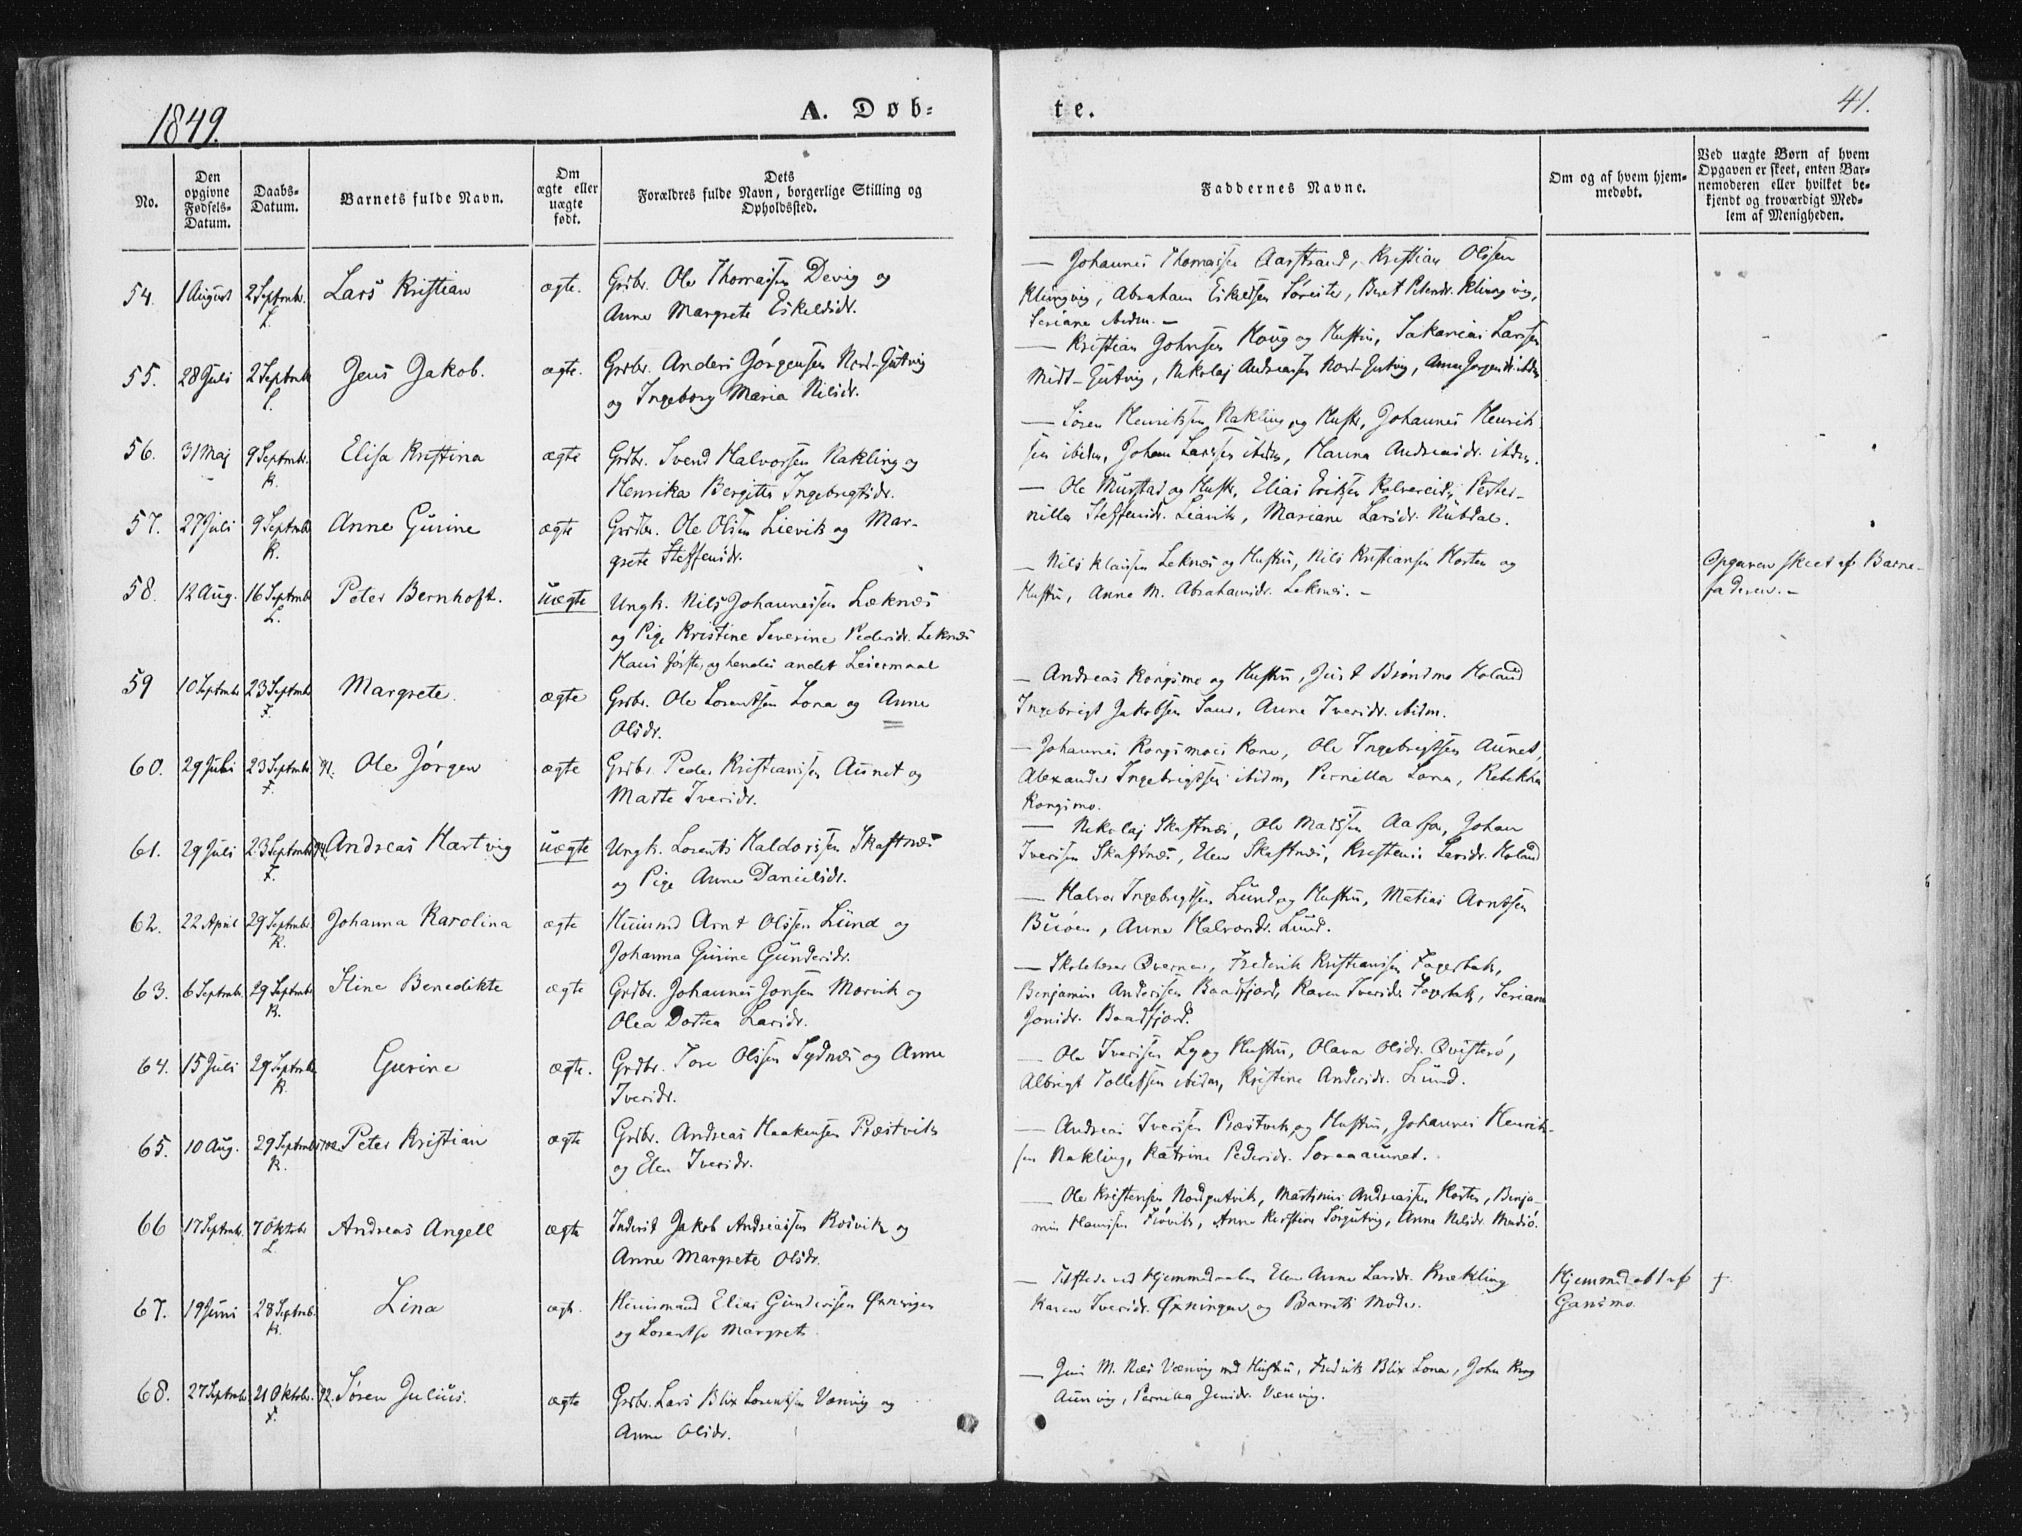 1849.
A. Døb-
te.
41.
No.
Den opgivne Fødsels-Datum.
Daabs-Datum.
Barnets fulde Navn.
Om ægte eller uægte født.
Dets Forældres fulde Navn, borgerlige Stilling og Opholdssted.
Faddernes Navne.
Om og af hvem hjem-medøbt.
Ved uægte Børn af hvem Opgaven er skeet, enten Bar-nemoderen eller hvilket be-kjendt og troværdigt Med-lem af Menigheden.
54. 1 August 2 Septmbr. L. Lars Kristian ægte. Grdbr. Ole Thomassen Devig og
Anne Margrete Eskeldsdr.
— Johannes Thomassen Aarstrand, Kristian Olsen
Klungvig, Abraham Eskeldsen Søreiter, Beret Petersdr. Klungvig,
Seriane ibidm. —
55. 28 Juli 2 Septmbr L. Jens Jakob. ægte. Grdbr. Anders Jørgensen Nord-Gutvig
og Ingeborg Maria Nilsdr.
— Kristian Johnsen Houg og Hustru, Sakarias Larsen
Midt-Gutvig, Nikolaj Andreassen Nord-Gutvig, Anne Jørgensdr. ibidm
56. 31 Maj 9 Septmbr. R. Elisa Kristina ægte Grdbr. Svend Halvorsen Nakling og
Henrika Bergitte Ingebrigtsdr.
— Sören Henriksen Nakling og Hustr, Johannes Henrik-
sen ibidm, Johan Larssen ibidm, Hanna Andreasdr. ibidm.
57. 27 Juli 9 Septmbr R. Anne Gurine ægte Grdbr. Ole Olsen Lievik og Mar-
grete Steffensdr.
— Ole Murstad og Hustr, Elias Eriksen Kolvereid, Peter-
nilla Steffensdr. Liavik, Mariane Larsdr. Rubdal.
58. 12 Aug. 16 Septmbr L. Peter Bernhoft. uægte Ungk. Nils Johannessen Læknes
og Pige Kristine Severine Pedersdr. Leknæs
Hans første, og hendes andet Leiermaal
— Nils Klausen Leknes og Hustru, Nils Kristiansen Horten og
Hustru, Anne M. Abrahamsdr. Leknes. —
Opgaven skeet af Barne-
faderen. —
59 10 Septmbr 23 Septmbr F. Margrete. ægte Grdbr. Ole Lorentsen Lona og Anne
Olsdr.
— Andreas Kongsmo og Hustru, Just Brøndmo Holand
Ingebrigt Jakobsen Saur, Anne Iversdr. ibidm.
60. 29 Juli 23 Septmbr F. Ole Jørgen ægte Grdbr. Peder Kristiansen Aunet og
Marte Iversdr.
— Johannes Kongsmoes Kone, Ole Ingebrigtsen Aunet,
Alexander Ingebrigtsen ibidm, Pernilla Lona, Rebekka
Kongsmo.
61. 29 Juli 23 Septmbr F. Andreas Hartvig uægte Ungk. Lorents Haldorsen Skaftnæs
og Pige Anne Danielsdr.
— Nikolaj Skaftnæs, Ole Matssen Aasfar, Johan
Iversen Skaftnæs, Elen Skaftnæs, Larsdr. Holand
62. 22 April 29 Septmbr. R. Johanna Karolina ægte Huusmd Arnt Olssen Lund og
Johanna Gurine Gundersdr.
— Halvor Ingebrigtsen Lund og Hustru, Matias Arntsen
Buøen, Anne Halvorsdr. Lund.
63. 6 Septmbr. 29 Septmbr R. Stine Benedikte ægte Grdbr. Johannes Jonsen Morvik og
Olea Dortea Larsdr.
— Skolelærer Overnes, Frederik Kristiansen Fagerbak,
Benjamin Andersen Baadfjord, Karen Iversdr Fagerbak, Seriane
Jonsdr. Baadfjord.
64. 15 Juli 29 Septmbr R. Gurine ægte. Grdbr. Tore Olssen Sydnæs og Anne
Iversdr.
— Ole Iversen Ly og Hustru, Olava Olsdr. Qvisterö,
Albrigt Tollefsen ibidm, Kristine Andersdr. Lund.
65. 10 Aug. 29 Septmbr R. Peter Kristian ægte Grdbr. Andreas Haakensen Præstvik
og Elen Iversdr.
— Andreas Iversen Præstvik og Hustru, Johannes Henrik-
sen Nakling, Katrine Pedersdr. Soraaunet.
66 17 Septmbr. 7 Oktobr L Andreas Angell ægte Inderst Jakob Andreassen Rosvik og
Anne Margrete Olsdr.
— Ole Kristensen Nordgutvik, Martinus Andreassen Horten, Benja-
min Hansen Fiøvik, Anne Kirstina Sørgutvig, Anne Nilsdr. Madsö.
67. 19 Juni 28 Septmbr. R. Lina ægt. Huusmand Elias Gundersen Øxningen
og Lorentse Margrete
— Tilstede ved Hjemmedaaben Elen Anna Larsdr. Krækling
Karen Iversdr. Øxningen og Barnets Moder.
Hjemmedøbt af
Gansmo.
†
68. 27 Septmbr 21 Oktobr. F. Søren Julius. ægte Grdbr. Lars Blix Lorentsen Vænvig og
Anne Olsdr.
— Jens M. Næs Vænvig med Hustru, Fredrik Blix Lona, John Krog
Aunvig, Pernilla Jensdr. Vænvig.